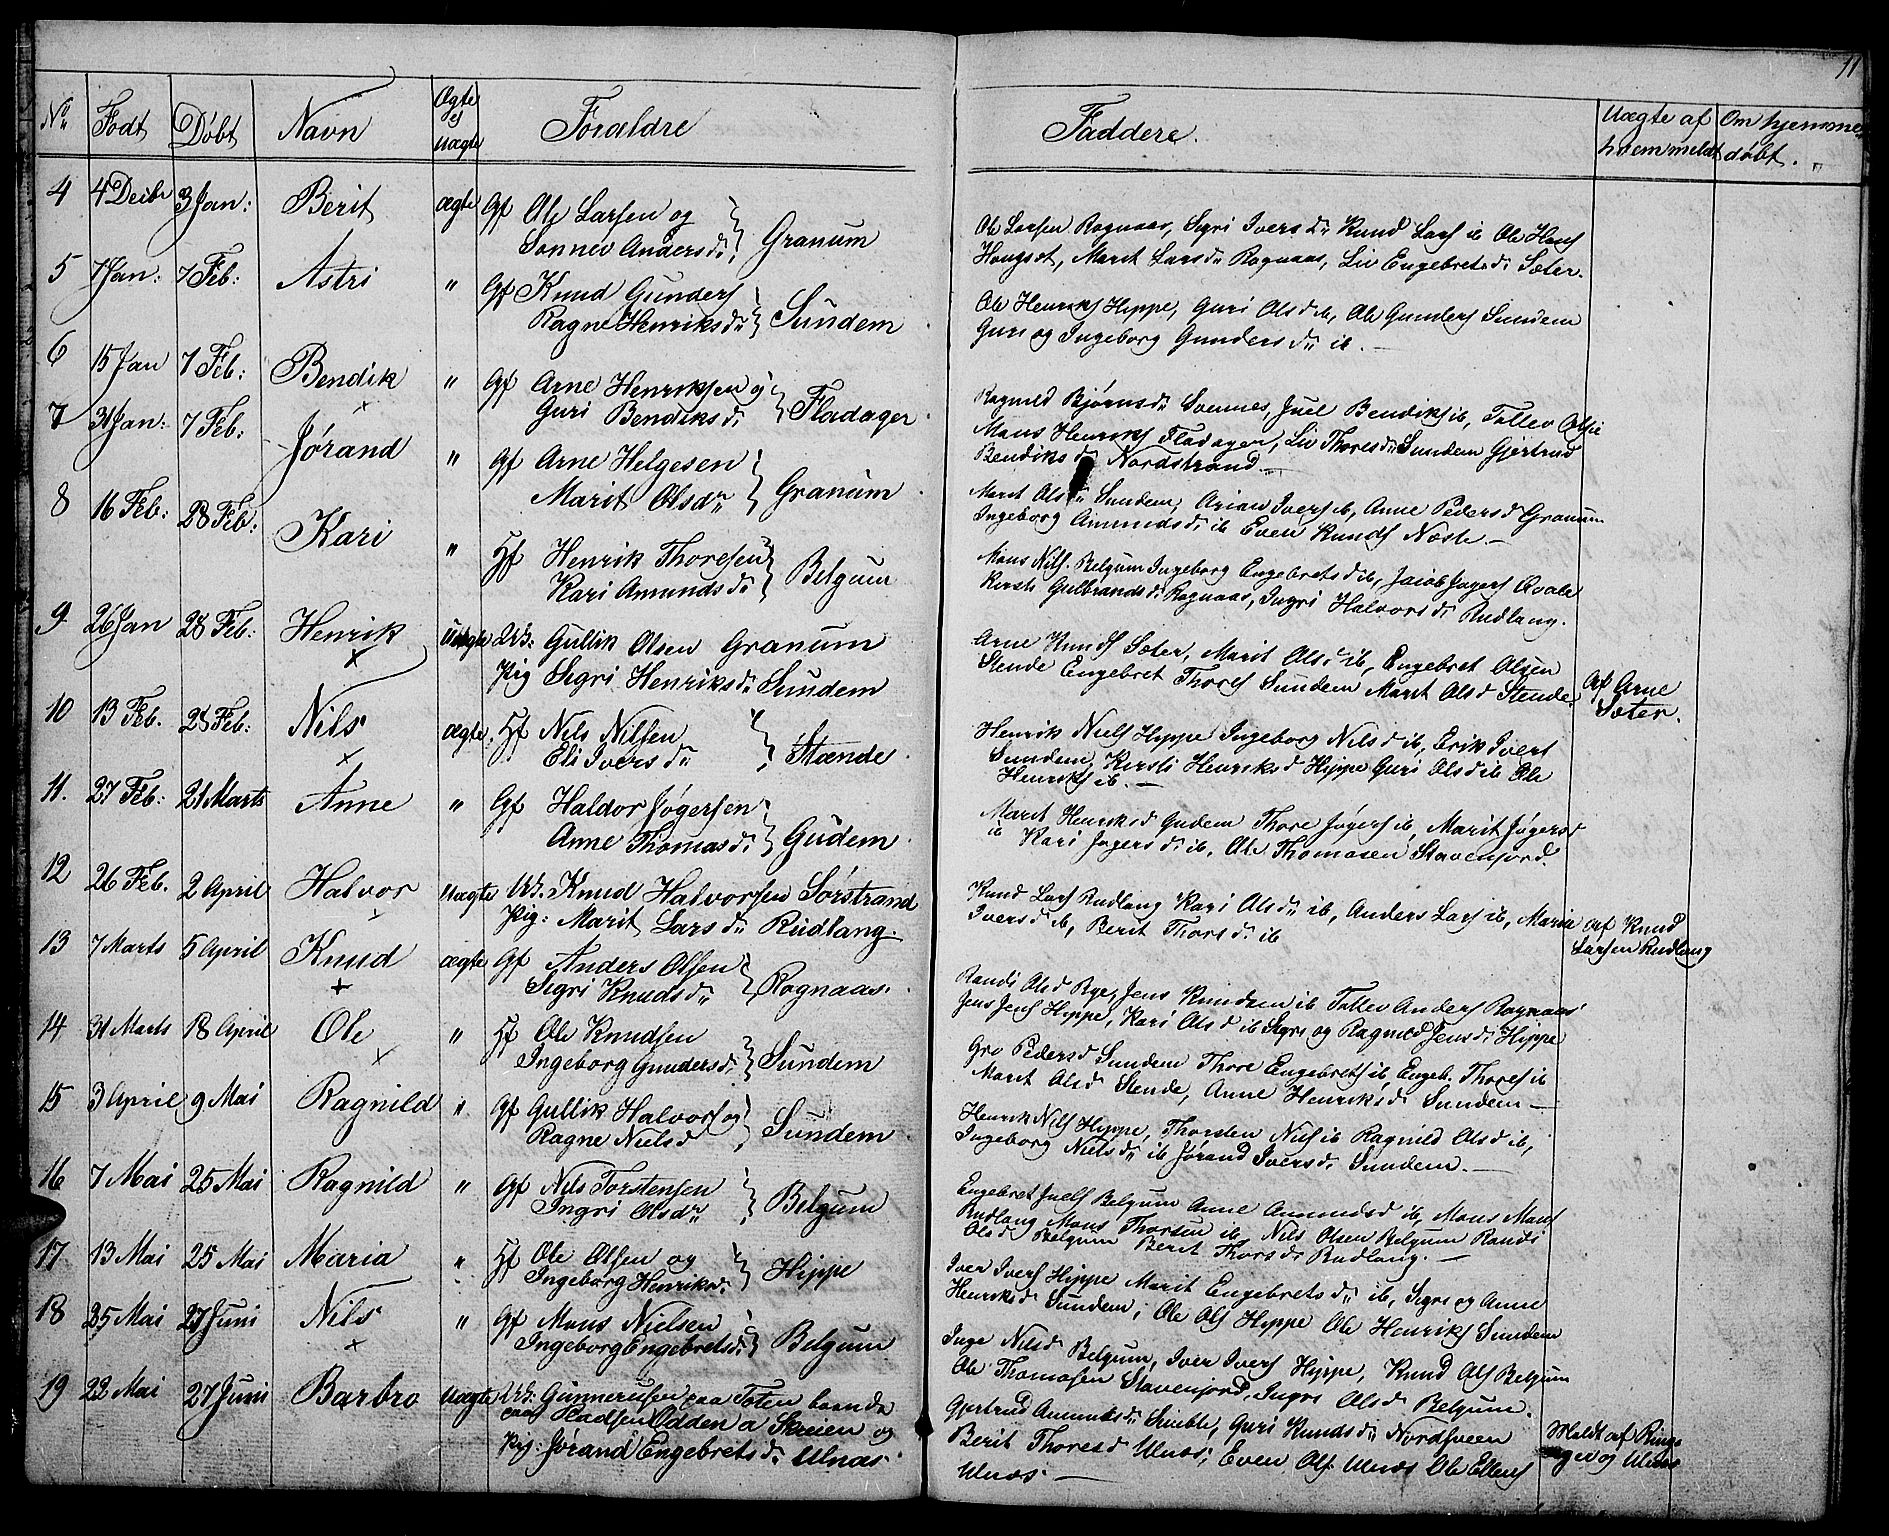 11
No Født Døbt Navn Ægte ej uægte Forældre Faddere. Uægte af hvem meldt Om hjemmedøbt.
4 4 Decbr 3 Jan: Berit ægte Gf Ole Larsen og
Sonnev Andersd: Granum
Ole Larsen Rognaas, Sigri Iversd: Knud Larss ib Ole Hans
Haugsrt, Marit Larsd: Rognaas, Liv Engebretsd: Sæter.
5 7 Jan: 7 Feb: Astri " Gf Knud Gunders
Ragne Henriksd: Sundem
Ole Henriks Hippe, Guri Olsd ib, Ole Gunders Sundem
Guri og Ingeborg Gundersd: ib. —
6 15 Jan 7 Feb: Bendik " Gf Arne Henriksen og
Guri Bendiksd: Fladager
Ragnild Bjørnsd: Svennes, Juel Bendiks ib, Tollev Ols ib
Mons Henriks Fladager, Liv Thoresd: Sundem Gjertrud
Bendiksd: Nordstrand —
7 31 Jan: 7 Feb: Jørand " Gf Arne Helgesen
Marit Olsd: Granum
Marit Olsd: Sundem, Arian Ivers ib, Anne Pedersd Granum
Ingeborg Amundsd: ib Even Knuds Næste. —
8 16 Feb: 28 Feb: Kari " Hf Henrik Thoresen
Kari Amundsd: Belgum
Mons Nils. Belgum Ingeborg Engebretsd ib, Jacob Jøgers Qvale
Kirsti Gulbrandsd: Rognaas, Ingri Halvorsd: Rudlang.
9 26 Jan 28 Feb: Henrik Uægte Uk: Gullik Olsen Granum
Pig Sigri Henriksd: Sundem
Arne Knuds Sæter, Marit Olsd ib, Engebret Olsen
Stende Engebret Thores Sundem Marit Olsd Stende.
Af Arne
Sæter.
10 13 Feb. 28 Feb: Nils ægte Hf Nils Nilsen
Eli Iversd: Stænde
Henrik Niels Hippe Ingeborg Nilsd ib, Erik Ivers
Sundem, Kirsti Henriksd Hippe Guri Olsd ib Ole
Henriks ib. —
11. 27 Feb: 21 Marts Anne " Gf Haldor Jøgersen
Anne Thomasd: Gudem
Marit Henriksd Gudem Thore Jøgers ib, Marit Jøgersd
ib Kari Jøgersd: ib, Ole Thomasen Stavenjord.
12 26 Feb. 2 April Halvor Uægte Uk. Knud Halvorsen Sørstrand
Pig: Marit Larsd: Rudlang.
Knud Lars Rudlang Kari Olsd: ib, Anders Lars ib, Maria
Iversd ib, Berit Thorsd: ib
af Knud
Larsen Rudlang
13 7 Marts 5 April Knud ægte Gf Anders Olsen
Sigri Knudsd: Rognaas.
Randi Olsd Rye, Jens Knudsen ib Tollev Anders Rognaas
Jens Jens Hippe, Kari Olsd ib Sigri og Ragnild Jensd: Hippe
14 31 Marts 18 April Ole " Hf Ole Knudsen
Ingeborg Gundersd: Sundem
Gro Pedersd Sundem Thore Engebrets ib, Engeb. Thores ib
Marit Olsd Stende, Anne Henriksd: Sundem —
15 3 April 9 Mai Ragnild " Gf Gullik Halvors og
Ragne Nielsd Sundem
Henrik Nils Hippe, Thorsten Niels ib Ragnild Olsd ib,
Ingeborg Nielsd: ib Jørand Iversd: Sundem. —
16 7 Mai 25 Mai Ragnild " Gf Nils Torstensen
Ingri Olsd: Belgum
Engebret Juels Belgum Anne Amundsd ib, Mons Mons
Rudlang Mons Thorsen ib, Nils Olsen Belgum Randi
Olsd Belgum Berit Thorsd: Rudlang. —
17 13 Mai 25 Mai Maria " Hf Ole Olsen og
Ingeborg Henriksd: Hippe
Iver Ivers Hippe Marit Engebretsd: ib, Sigri og Anne
Henriksd: Sundem, Ole Ols Hippe Ole Henriks Sundem
18 25 Mai 27 Juni Nils " Gf Mons Nielsen
Ingeborg Engebretsd: Belgum
Inge Nilsd Belgum, Iver Ivers Hippe, Knud Ols Belgum
Ole Thomasen Stavenjord, Ingri Olsd Belgum.
19 22 Mai 27 Juni Barbro Uægte Uk: Gunnerusen paa Toten
Odden a Skreien og
Pig: Jørand Engebretsd: Ulnæs
Gjertrud Amundsd: Guri Knudsd: Nordsveen
Berit Thoresd Ulnæs, Even Ols Ulnæs Ole Ellens
Ulnæs. —
Meldt af
og Ulnæs